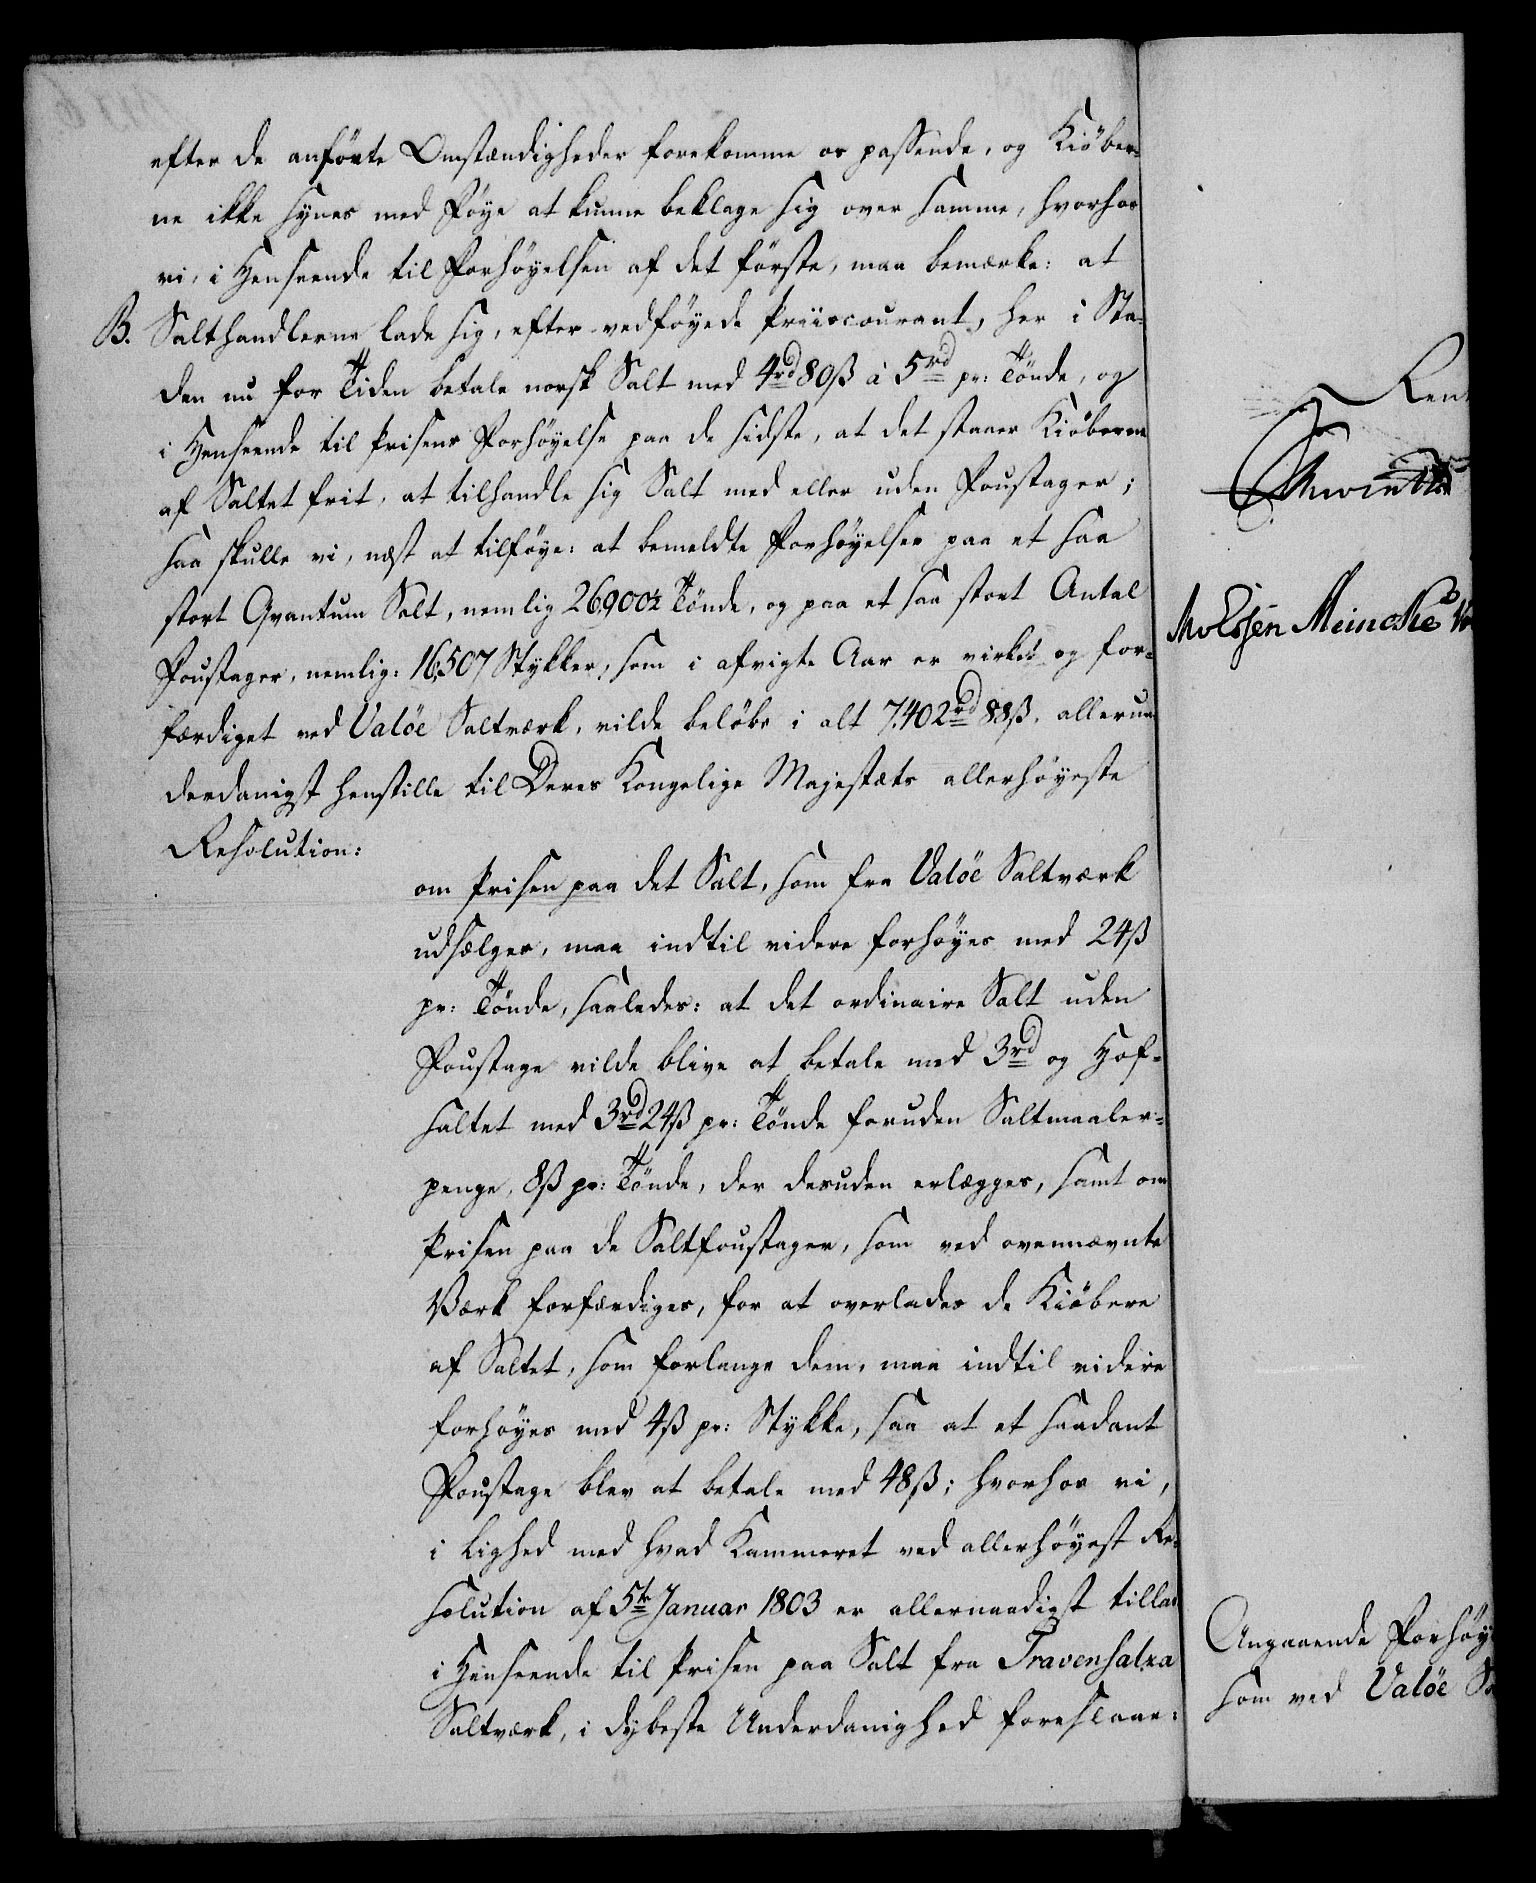 efter de anførte Omstændigheder forekomme os passende, og Kiöber-
ne ikke synes med Föye at kunne beklage sig over samme, hvorhos
vi, i Henseende til Forhöyelsen af det förste, maa bemærke: at
B. Salthandlerne lade sig, efter vedföyede Priiscourant, her i Sta-
den nu for Tiden betale norsk Salt med 4rd 80ß à 5rd pr: Tönde, og
i Henseende til Prisens Forhöyelse paa de sidste, at det staaer Kiöberne
af Saltet frit, at tilhandle sig Salt med eller uden Foustager;
saa skulle vi, næst at tilföye: at bemeldte Forhöyelser paa et saa
stort Qvantum Salt, nemlig 26,900½ Tönde, og paa et saa stort Antal
Foustager, nemlig: 16,507 Stykker, som i afvigte Aar er virket og for-
færdiget ved Valöe Saltværk, vilde belöbe i alt 7,402rd 88ß, allerun-
derdanigst henstille til Deres Kongelige Majestæts allerhöyeste
Resolution:
om Prisen paa det Salt, som fra Valöe Saltværk
udsælges, maa indtil videre forhöyes med 24ß
pr: Tönde, saaledes: at det ordinaire Salt uden
Foustage vilde blive at betale med 3rd og Hof-
saltet med 3rd 24ß pr: Tönde foruden Saltmaaler-
penge, 8ß pr: Tönde, der desuden erlægges, samt om
Prisen paa de Saltfoustager, som ved ovennævnte
Værk forfærdiges, for at overlades de Kiöbere
af Saltet, som forlange dem, maa indtil videre
forhöyes med 4ß pr: Stykke, saa at et saadant
Foustage blev at betale med 48ß; hvorhos vi,
i Lighed med hvad Kammeret ved allerhöyest Re-
solution af 5te Januar 1803 er allernaadigst tillad
i Henseende til Prisen paa Salt fra Travensalza
Saltværk, i dybeste Underdanighed foreslaae:
Rent
MvEssen Meincke
Angaaende Forhöy
som ved Valöe Sa